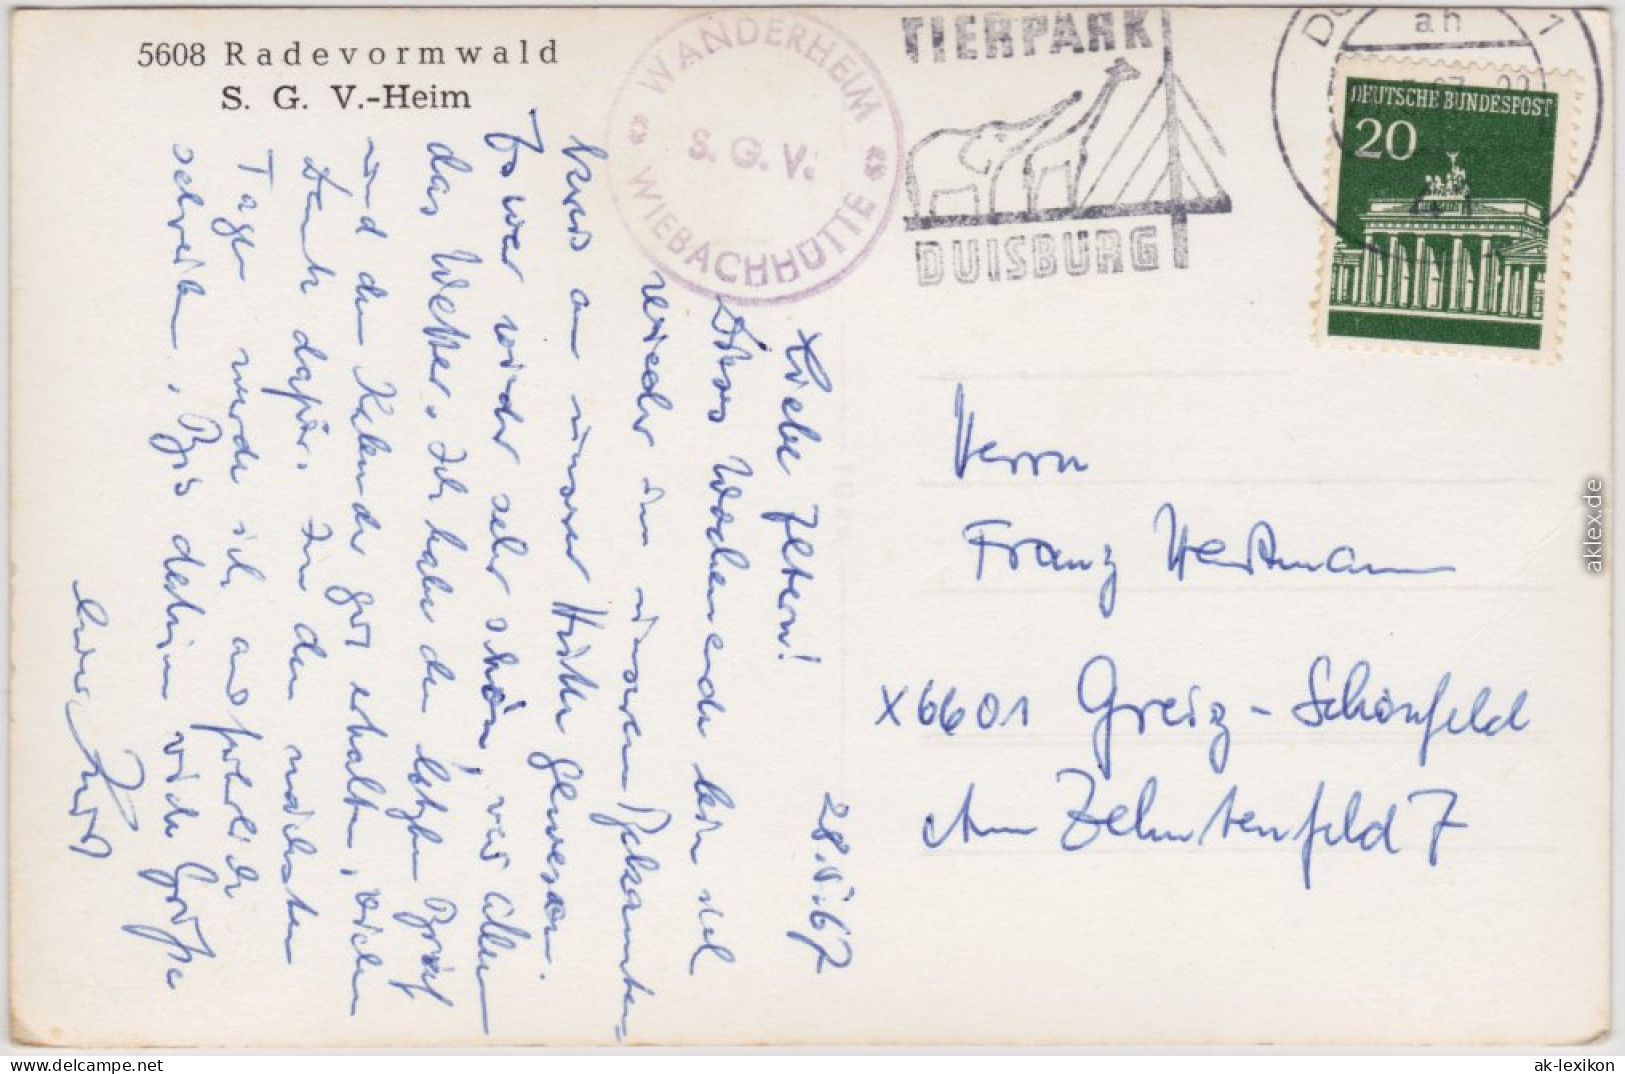 5608 Radevormwald
S. G. V.-Heim
WANDERHEIM
S. G. V.
WIEBACHHÜTTE
TIERPARK
DUISBURG
ah
1
41
DEUTSCHE BUNDESPOST
20
28.5.67
Liebe Eltern!
Dieses Wochenende bin ich
wieder in unserem Bekannten=
kreis an unserer Hütte gewesen.
Es war wieder sehr schön, vor allem
das Wetter. Ich habe den letzten Brief
und den Kalender gut erhalten, vielen
Dank dafür. In den nächsten
Tagen werde ich ausführlicher
schreiben. Bis dahin viele Grüße
Euer
Herrn
Franz Hartmann
X6601 Greiz-Schönfeld
Am Zehntenfeld 7
aklex.de
ak-ansichtskarten.de
ak-lexikon